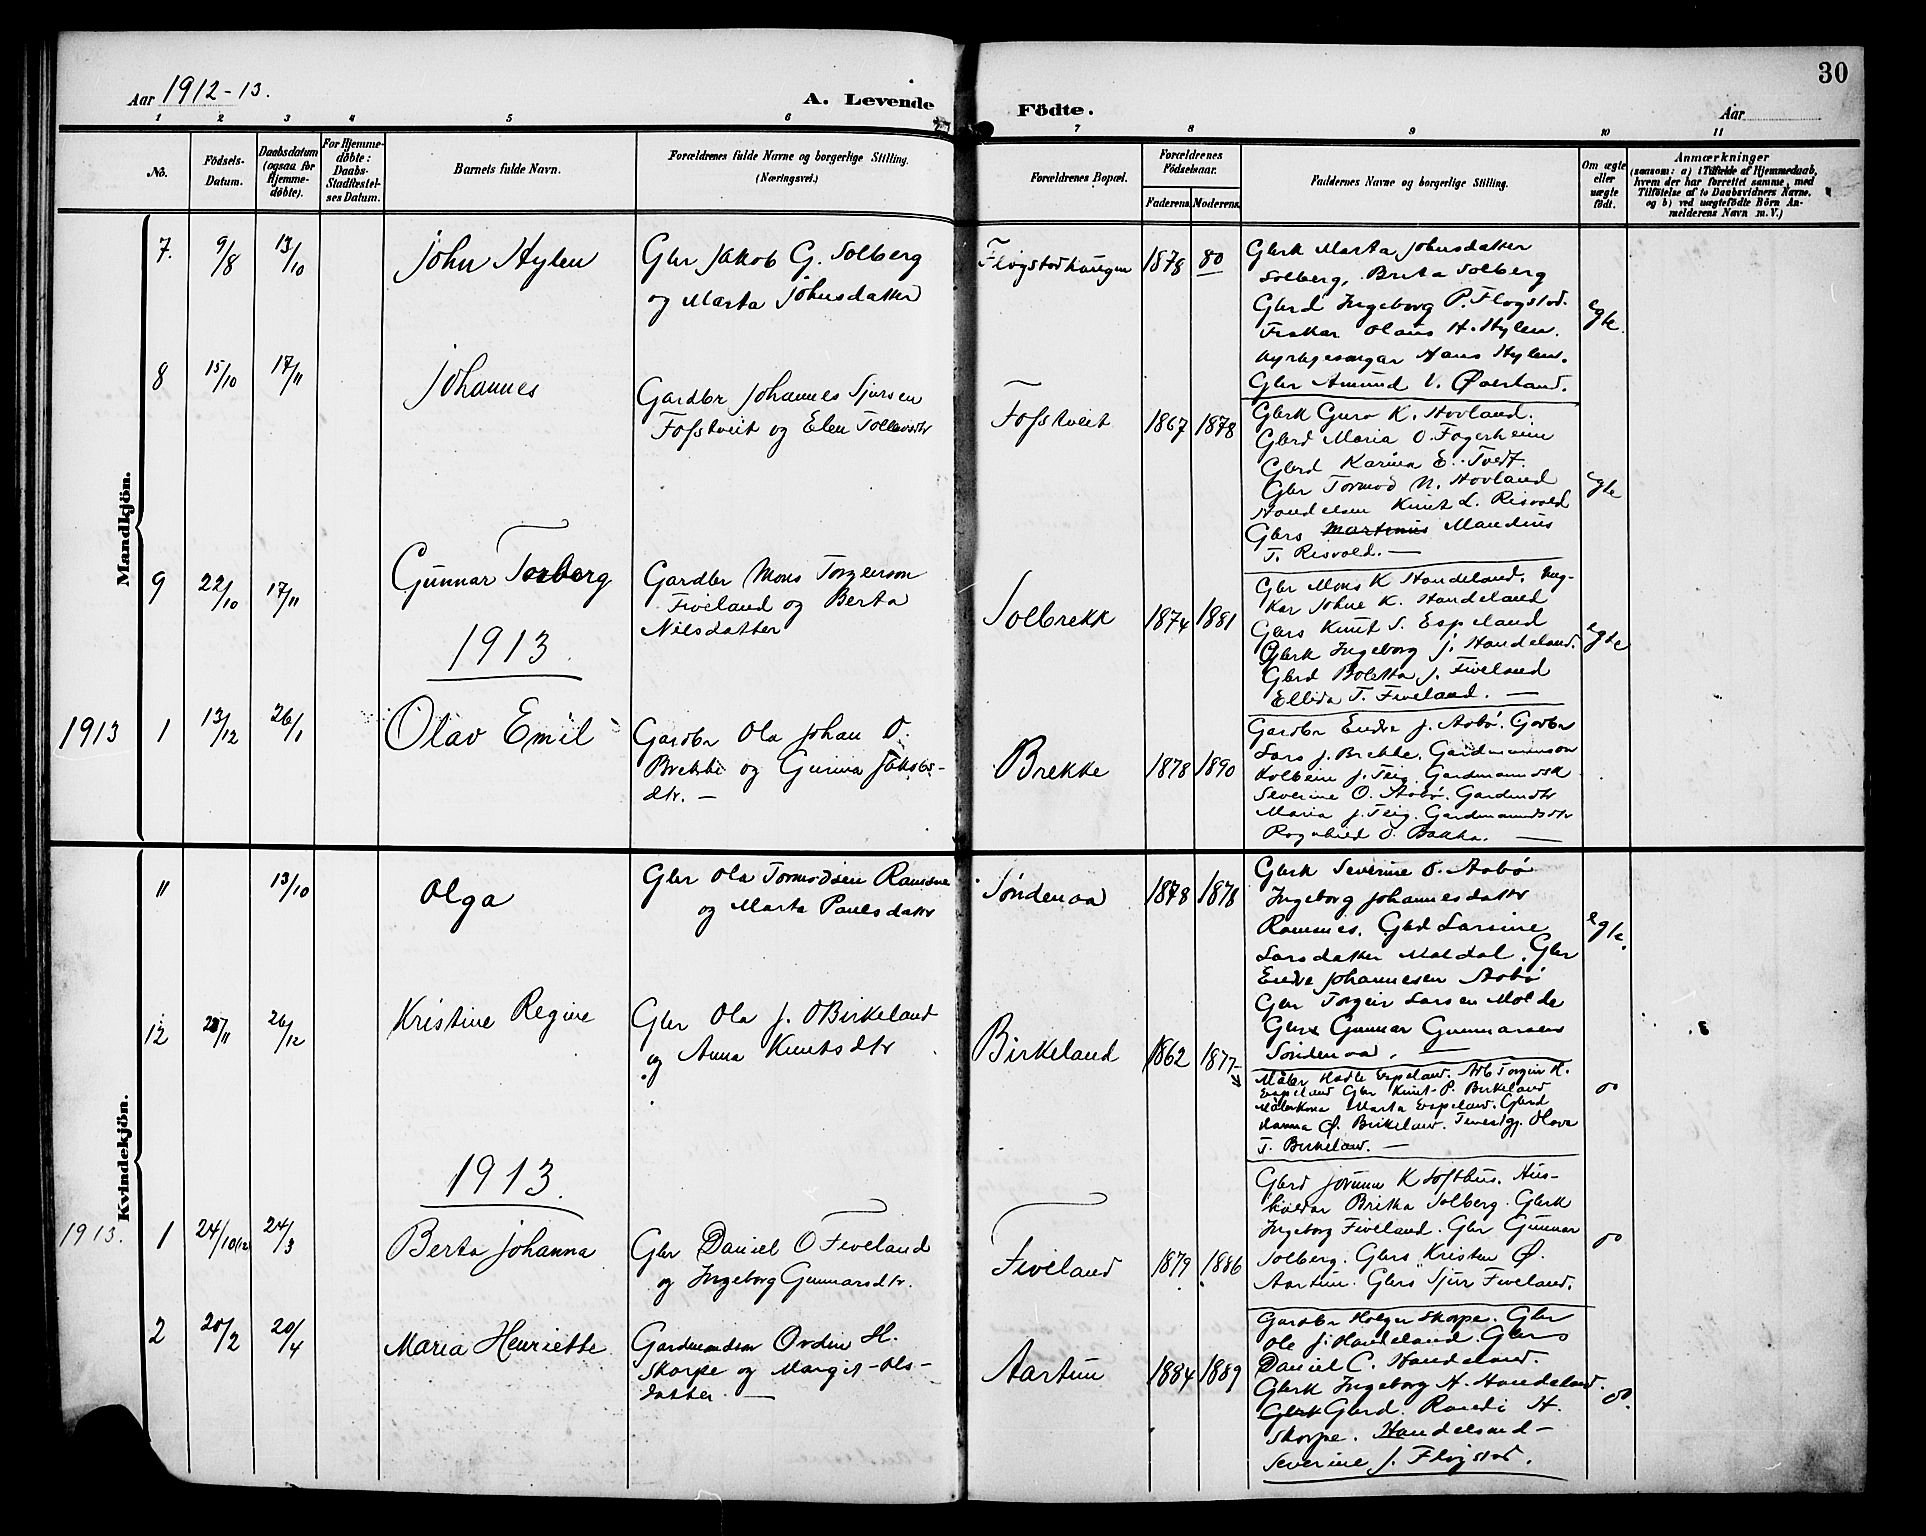 Aar 1912-13.
A. Levende
Födte.
Aar
30
1 2 3 4 5 6 7 8 9 10 11
No.
Födsels-
Datum.
Daabsdatum
(ogsaa for
Hjemme-
döbte).
For Hjemme-
döbte:
Daabs-
Stadfæstel-
ses Datum.
Barnets fulde Navn.
Forældrenes fulde Navne og borgerlige Stilling.
(Næringsvei.)
Forældrenes Bopæl.
Forældrenes
Födselsaar.
Faderens.
Moderens.
Faddernes Navne og borgerlige Stilling.
Om ægte
eller
uægte
födt.
Anmærkninger
(saasom: a) i Tilfælde af Hjemmedaab,
hvem der har forrettet samme, med
Tilföielse af to Daabsvidners Navne,
og b) ved uægtefödte Börn An-
melderens Navn m. V.)
Mandkjön.
7. 9/8 13/10 John Hylen
Gbr Jakob G. Solberg
og Marta Johnsdatter
Flogstadhaugen 1878 80
Gbrk Marta Johnsdatter
Solberg, Brita Solberg
Gbrd Ingeborg P. Flogstad.
Frakar Olaus H. Hylen.
kyrkjesongar Hans Hylen.
Gbr Amund V. Øverland.
egte.
8 15/10 17/11 Johannes
Gardbr Johannes Sjursen
Fosstveit og Elen Tollevsdtr
Fosstveit 1867 1878
Gbrk Guro K. Hovland.
Gbrd Maria O. Fagerheim
Gbrd Karina E. Tvedt.
Gbr Tormod N. Hovland
Handelsm Knut L. Risvold
Gbrs Martinus Mandius
T. Risvold. —
egte
9 22/10 17/11 Gunnar Torberg
Gardbr Mons Torgerson
Fiveland og Berta
Nilsdatter
Solbrekk 1874 1881
Gbr Mons K Handeland. Ung-
kar Johne K. Handeland
Gbrs Knut S. Espeland
Gbrk Ingeborg J. Handeland.
Gbrd Boletta J. Fiveland
Ellida T. Fiveland. —
egte
1913.
1913 1 13/12 26/1 Olav Emil
Gardbr Ola Johan O.
Brekke og Gurina Jakobs-
dtr. —
Brekke 1878 1890
Gardbr Endre J. Aabø. Gardbr
Lars J. Brekke. Gardmannson
Kolbein J. Teig. Gardmannsk
Severine O. Aabø. Gardmdtr
Maria J. Teig. Gardmannsdtr
Ragnhild O. Bakka. —
Kvindekjön.
11 13/10 Olga
Gbr Ola Tormodsen Ramsne
og Marta Paulsdatter
Søndenaa 1878 1878
Gbrk Severine O. Aabø
Ingeborg Johannesdatter
Ramsnes. Gbrd Larsine
Larsdatter Maldal. Gbr
Endre Johannesen Aabø
Gbr Torgeir Larsen Molde
Gbrs Gunnar Gunnarsen
Søndenaa. —
egte.
12 26/12 Kristine Regine
Gbr Ola J. O Birkeland
og Anna Knutsdtr
Birkeland 1862 1877
Maler Hadle Espeland. Arb Torgeir H.
Espeland Gbr Knut P. Birkeland
Malerkona Marta Espeland. Gbrd
Hanna Ø. Birkeland. Tenestgj. Olava
T. Birkeland. —
1913.
1913. 1 24/10 (12) 24/3 Berta Johanna
Gbr Daniel O Fiveland
og Ingeborg Gunnarsdtr.
Fiveland 1879 1886
Gbrd Jorunn K Softhus. Hus-
huldar Britha Solberg. Gbrk
Ingeborg Fiveland. Gbr Gunnar
Solberg. Gbrs Kristen Ø.
Aartun. Gbrs Sjur Fiveland.
2 20/2 20/4 Maria Henriette
Gardmandson Orden H.
Skorpe og Margit Ols-
datter. —
Aartun 1884 1889
Gardbr Holger Skorpe. Gbr
Ole J. Handeland Gbrs
Daniel C. Handeland.
Gbrk Ingeborg H. Handeland.
Gbrk Gbrd. Randi H.
Skorpe. Handelsmd-
Severine J. Flogstad.